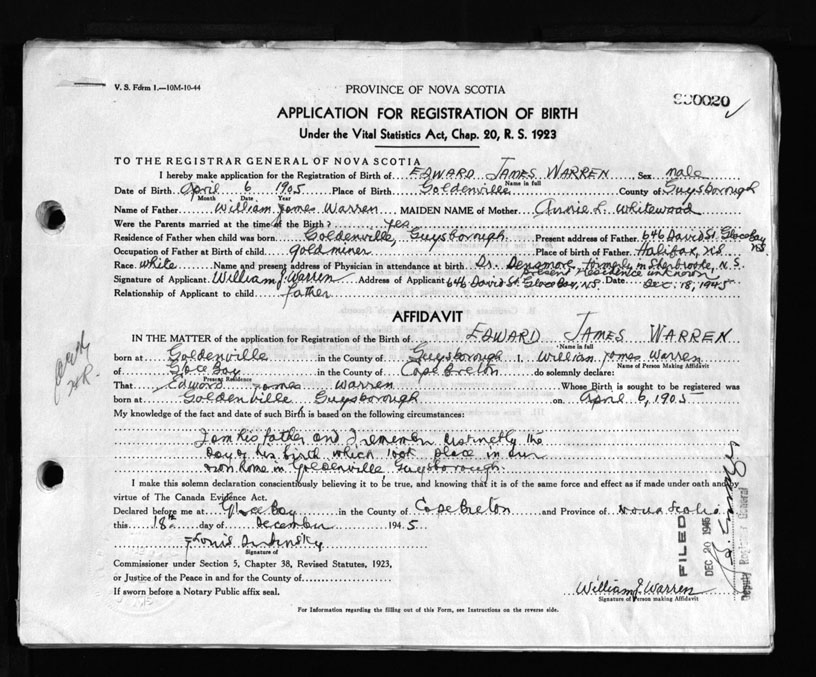 V. S. Form 1.—10M-10-44
PROVINCE OF NOVA SCOTIA
APPLICATION FOR REGISTRATION OF BIRTH
Under the Vital Statistics Act, Chap. 20, R. S. 1923
TO THE REGISTRAR GENERAL OF NOVA SCOTIA
I hereby make application for the Registration of Birth of EDWARD JAMES WARREN Sex male
Name in full
Date of Birth April 6 1905 Place of Birth Goldenville County of Guysborough
Month Date Year
Name of Father William James Warren MAIDEN NAME of Mother Annie L. Whitewood
Were the Parents married at the time of the Birth? Yes
Residence of Father when child was born Goldenville, Guysborough Present address of Father 646 David St. Glace Bay N.S.
Occupation of Father at Birth of child gold miner Place of birth of Father Halifax, N.S.
Race White Name and present address of Physician in attendance at birth Dr. Densmore formerly in Sherbrooke, N.S.
present residence unknown
Signature of Applicant William J. Warren Address of Applicant 646 David St. Glace Bay, N.S. Date Dec. 18, 1945
Relationship of Applicant to child father
AFFIDAVIT
IN THE MATTER of the application for Registration of the Birth of EDWARD JAMES WARREN
Name in full
born at Goldenville in the County of Guysborough I, William James Warren
Name of Person Making Affidavit
of Glace Bay in the County of Cape Breton do solemnly declare:
Present Residence
That Edward James Warren Whose Birth is sought to be registered was
born at Goldenville Guysborough on April 6, 1905
My knowledge of the fact and date of such Birth is based on the following circumstances:
I am his father and I remember distinctly the
day of his birth which took place in our
own home in Goldenville, Guysborough.
I make this solemn declaration conscientiously believing it to be true, and knowing that it is of the same force and effect as if made under oath and by
virtue of The Canada Evidence Act.
Declared before me at Glace Bay in the County of Cape Breton and Province of Nova Scotia
this 18th day of December 1945
Signature of
Commissioner under Section 5, Chapter 38, Revised Statutes, 1923,
or Justice of the Peace in and for the County of
If sworn before a Notary Public affix seal.
William J. Warren
Signature of Person making Affidavit
For Information regarding the filling out of this Form, see Instructions on the reverse side.
FILED
DEC 20 1945
Deputy Registrar General